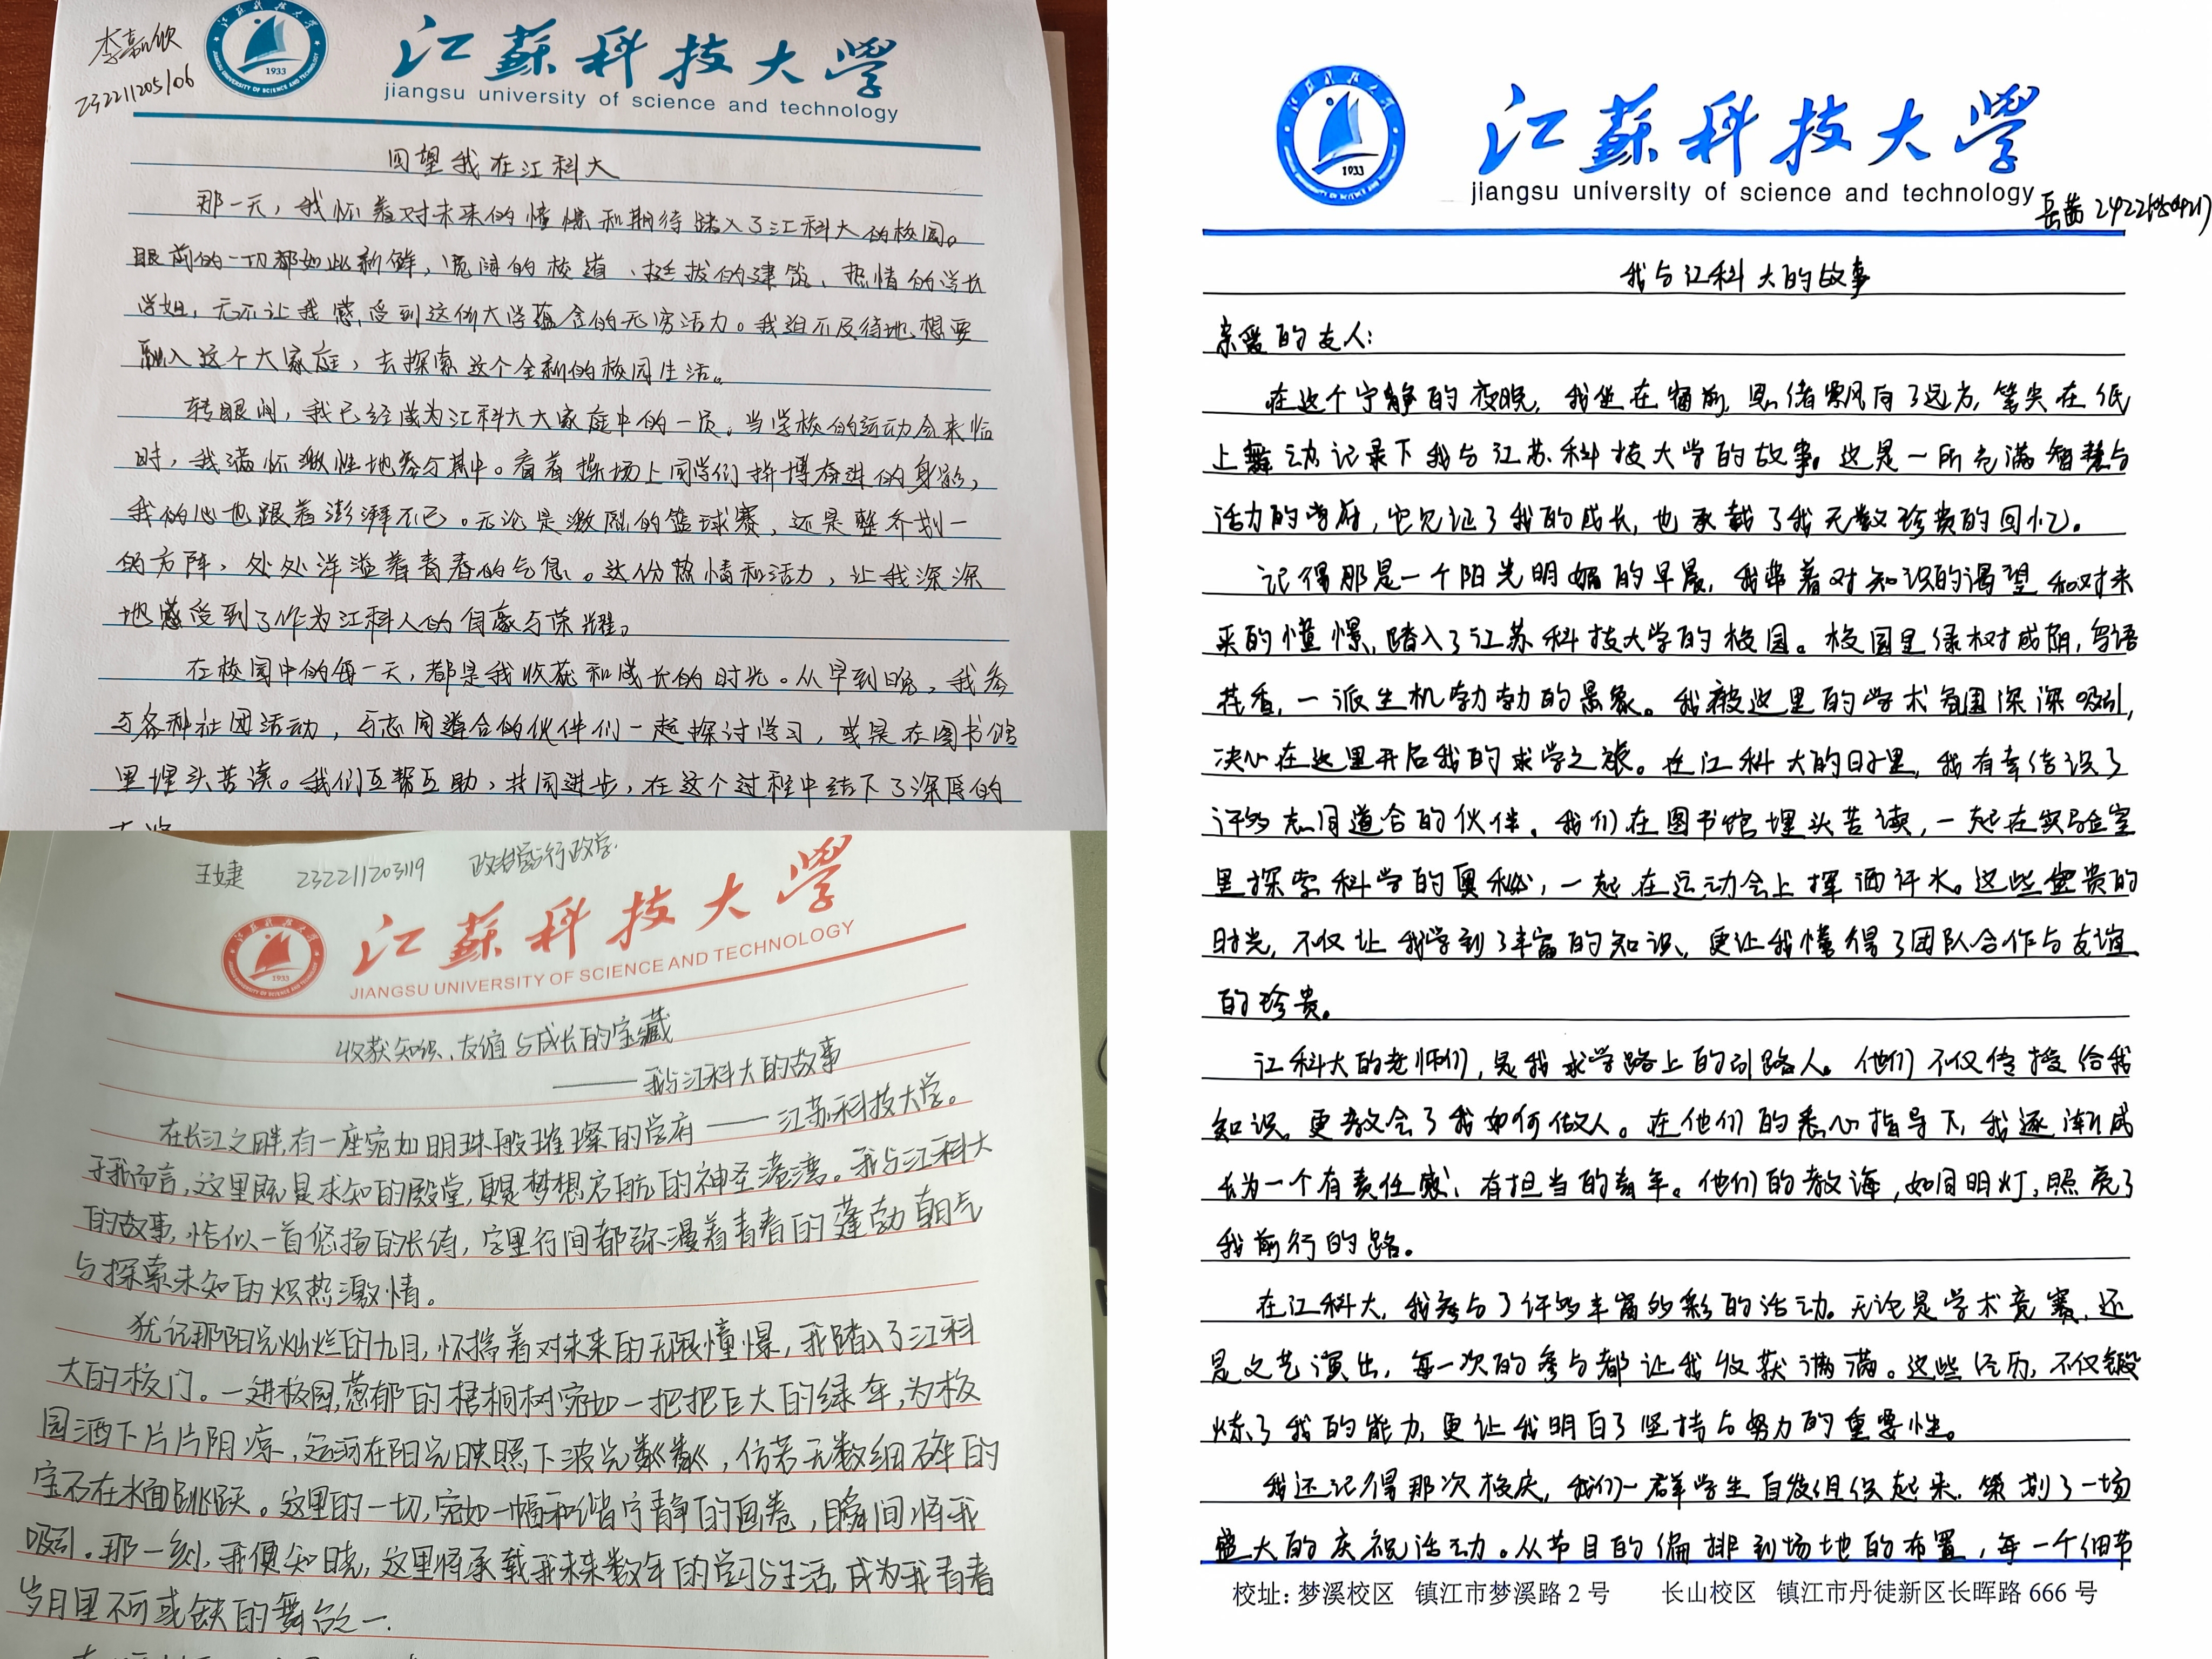 李新欣
232211205106
江蘇科技大學
jiangsu university of science and technology
回望我在江科大
那一天，我怀着对未来的憧憬和期待踏入了江科大的校园。
眼前的一切都如此新鲜，宽阔的校道、挺拔的建筑、热情的学长
学姐，无不让我感受到这所大学蕴含的无穷活力。我迫不及待地想要
融入这个大家庭，去探索这个全新的校园生活。
转眼间，我已经成为江科大大家庭中的一员。当学校的运动会来临
时，我满怀激性地参与其中。看着操场上同学们拼搏奋进的身影，
我的心也跟着澎湃不已。无论是激烈的篮球赛，还是整齐划一
的方阵，处处洋溢着青春的气息。这份热情和活力，让我深深
地感受到了作为江科人的自豪与荣耀。
在校园中的每一天，都是我收获和成长的时光。从早到晚，我参
与各种社团活动，与志同道合的伙伴们一起探讨学习，或是在图书馆
里埋头苦读。我们互帮互助，共同进步，在这个过程中结下了深厚的
王婕 232211203119 政治学与行政学
江蘇科技大學
JIANGSU UNIVERSITY OF SCIENCE AND TECHNOLOGY
收获知识、友谊与成长的宝藏
——我与江科大的故事
在长江之畔，有一座宛如明珠般璀璨的学府——江苏科技大学。
于我而言，这里既是求知的殿堂，更是梦想启航的神圣港湾。我与江科大
的故事，恰似一首悠扬的长诗，字里行间都弥漫着青春的蓬勃朝气
与探索未知的炽热激情。
犹记那阳光灿烂的九月，怀揣着对未来的无限憧憬，我踏入了江科
大的校门。一进校园，葱郁的梧桐树宛如一把把巨大的绿伞，为校
园洒下片片阴凉，运河在阳光映照下波光粼粼，仿若无数细碎的
宝石在水面跳跃。这里的一切，宛如一幅和谐宁静的画卷，瞬间将我
吸引。那一刻，我便知晓，这里将承载我未来数年的学习与生活，成为我青春
岁月里不可或缺的舞台之一.
1933
江蘇科技大學
jiangsu university of science and technology
岳茜
我与江科大的故事
亲爱的友人：
在这个宁静的夜晚，我坐在窗前，思绪飘向了远方，笔尖在纸
上舞动记录下我与江苏科技大学的故事。这是一所充满智慧与
活力的学府，它见证了我的成长，也承载了我无数珍贵的回忆。
记得那是一个阳光明媚的早晨，我带着对知识的渴望和对未
来的憧憬，踏入了江苏科技大学的校园。校园里绿树成荫，鸟语
花香，一派生机勃勃的景象。我被这里的学术氛围深深吸引，
决心在这里开启我的求学之旅。在江科大的日子里，我有幸结识了
许多志同道合的伙伴。我们在图书馆埋头苦读，一起在实验室
里探索科学的奥秘，一起在运动会上挥洒汗水。这些宝贵的
时光，不仅让我学到了丰富的知识，更让我懂得了团队合作与友谊
的珍贵。
江科大的老师们，是我求学路上的引路人。他们不仅传授给我
知识，更教会了我如何做人。在他们的悉心指导下，我逐渐成
长为一个有责任感、有担当的青年。他们的教诲，如同明灯，照亮了
我前行的路。
在江科大，我参与了许多丰富多彩的活动。无论是学术竞赛，还
是文艺演出，每一次的参与都让我收获满满。这些经历，不仅锻
炼了我的能力，更让我明白了坚持与努力的重要性。
我还记得那次校庆，我们一群学生自发组织起来，策划了一场
盛大的庆祝活动。从节目的编排到场地的布置，每一个细节
校址：梦溪校区 镇江市梦溪路 2 号 长山校区 镇江市丹徒新区长晖路 666 号